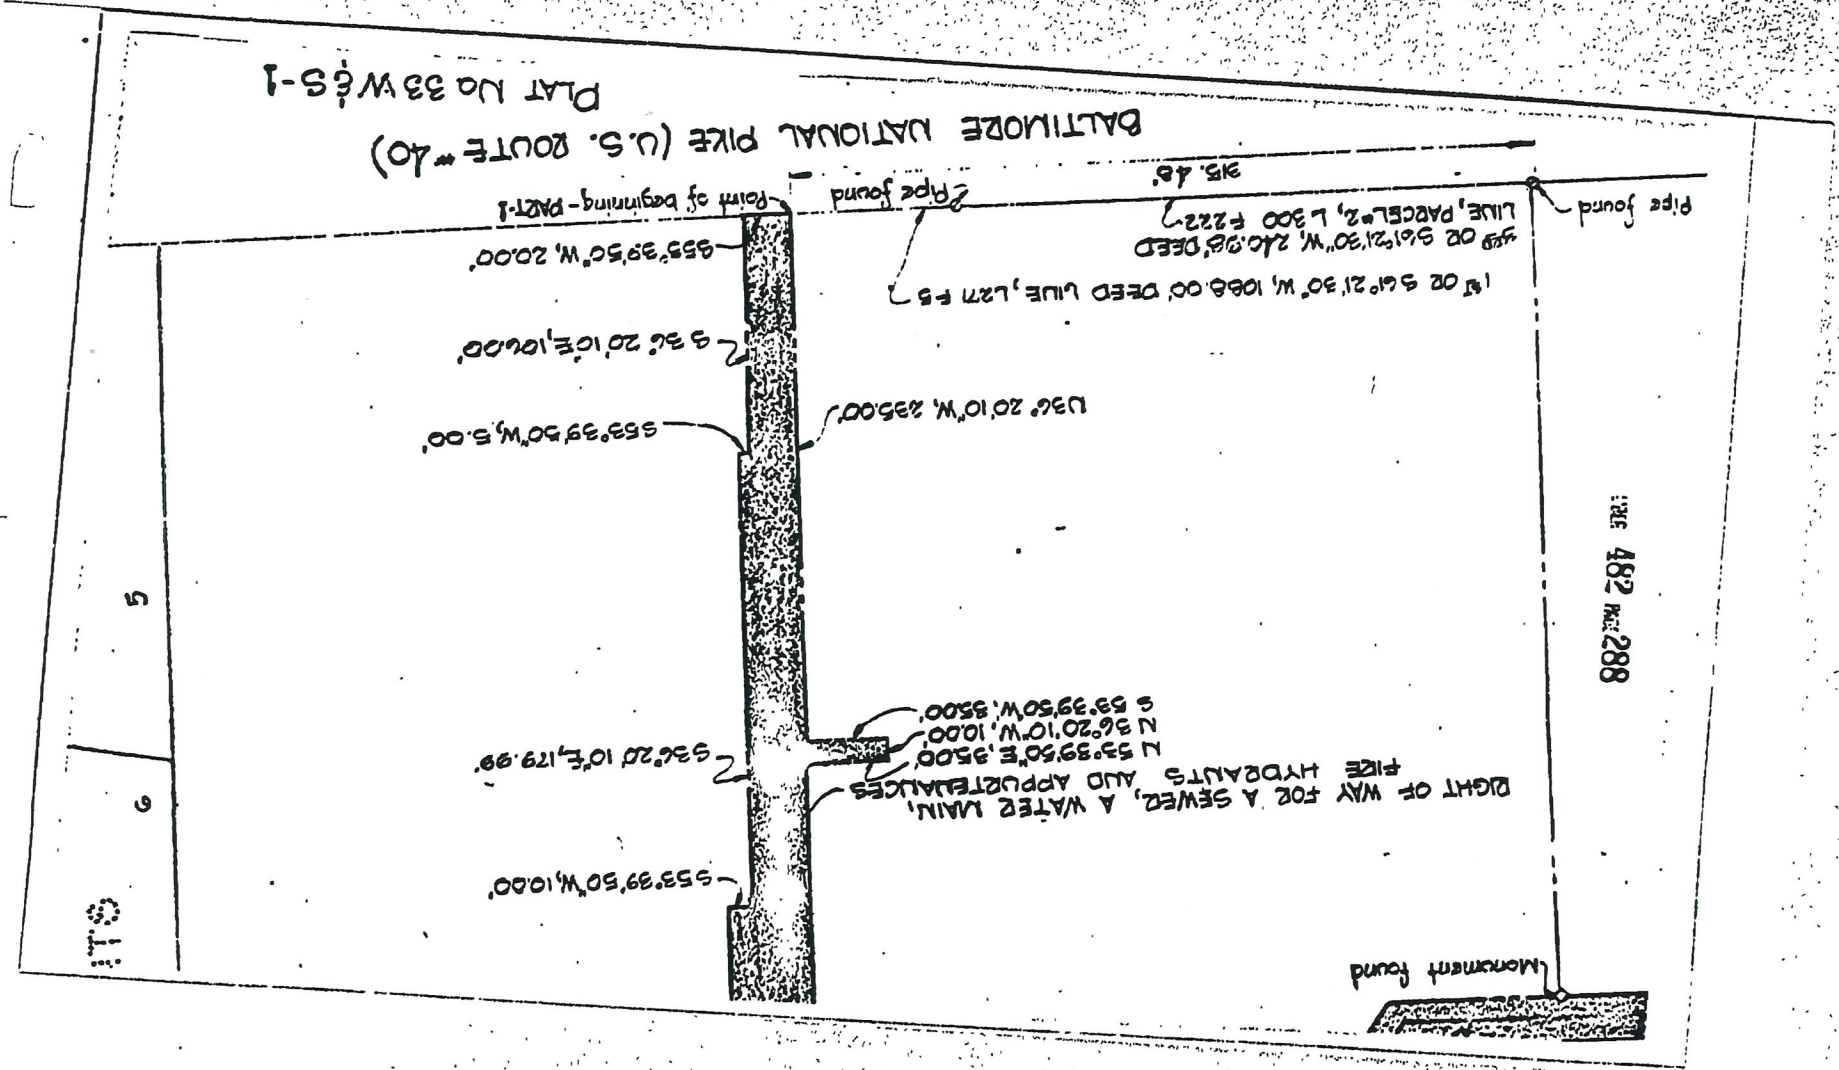 Monument found
S53°39'50"W, 10.00'
RIGHT OF WAY FOR A SEWER, A WATER MAIN,
FIRE HYDRANTS AND APPURTENANCES
N 53°39'50"E, 35.00'
N 36°20'10"W, 10.00'
S 53°39'50"W, 35.00'
S36°20'10"E, 179.99'
6
5
482 PAGE 288
S53°39'50"W, 5.00'
N36°20'10"W, 235.00'
S 36°20'10"E, 106.00'
1st OR S 61°21'30"W, 1088.00' DEED LINE, L271 F5
OR S 61°21'30"W, 240.98' DEED
LINE, PARCEL #2, L 300 F 222
S53°39'50"W, 20.00'
Pipe found
Pipe found
Point of beginning - PART-1
315.48'
BALTIMORE NATIONAL PIKE (U.S. ROUTE #40)
PLAT No 33 W & S-1